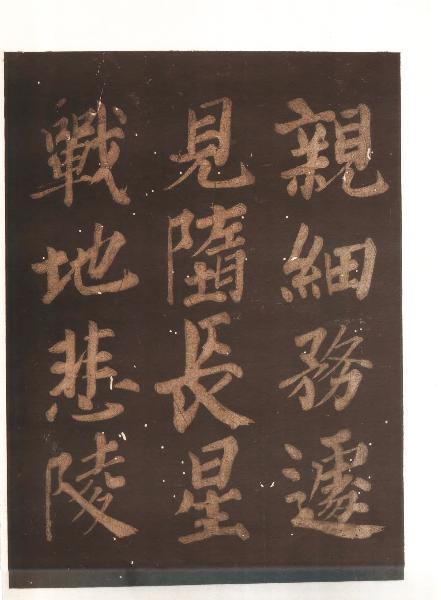 親細務遽
見墮長星
戰地悲陵